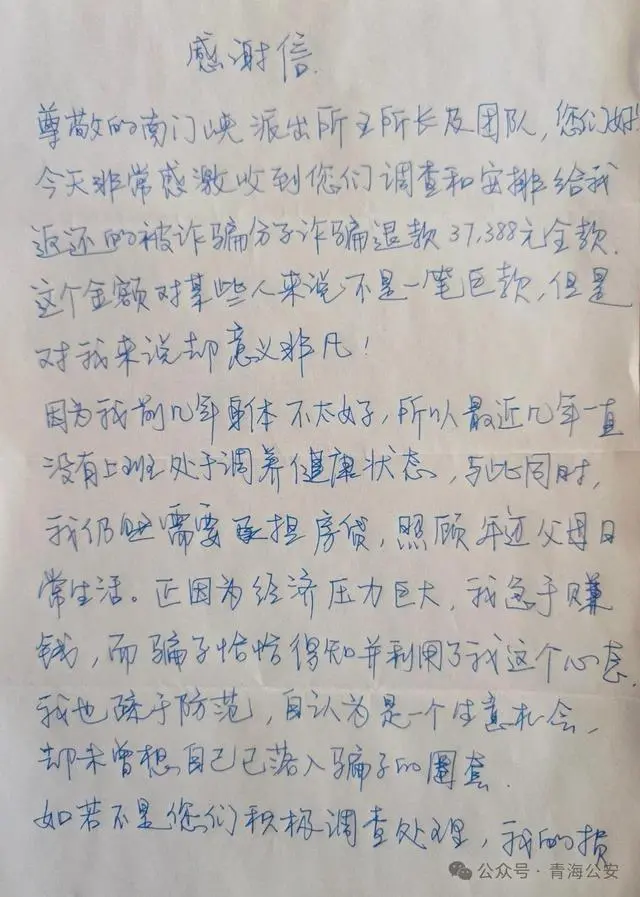 感谢信.
尊敬的南门峡派出所王所长及团队,您们好!
今天非常感激收到您们调查和安排给我
返还的被诈骗分子诈骗退款37,388元全款.
这个金额对某些人来说不是一笔巨款,但是
对我来说却意义非凡!
因为我前几年身体不太好,所以最近几年一直
没有上班处于调养健康状态,与此同时,
我仍然需要承担房贷,照顾年迈父母日
常生活。正因为经济压力巨大,我急于赚
钱,而骗子恰恰得知并利用了我这个心态.
我也疏于防范,自认为是一个生意机会,
却未曾想自己已落入骗子的圈套.
如若不是您们积极调查处理,我的损
公众号·青海公安